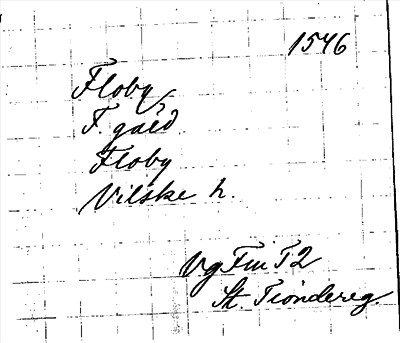 1546
Floby
F. gård
Floby
Vilske h.
Vg Fin T2
St. Tiondereg.